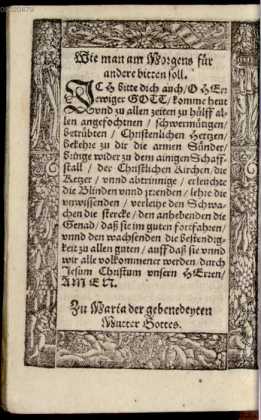 Wie man am Morgens für
andere bitten soll.
ICH bitte dich auch/ O HErr
ewiger GOTT/ komme heut
vnd zu allen zeiten zu hülff al-
len angefochtnen / schwermütigen/
betrübten / Christenlichen Hertzen/
bekehre zu dir die armen Sünder/
bringe wider zu dem ainigen Schaff-
stall / der Christlichen Kirchen/ die
Ketzer / vnnd abtrinnige / erleuchte
die Blinden vnnd irrenden / lehre die
vnwissenden / verleihe den Schwa-
chen die stercke / den anhebenden die
Genad/ daß sie im guten fortfahren/
vnnd den wachsenden die bestendig-
keit zu allen guten / auff daß sie vnnd
wir alle volkommener werden durch
Jesum Christum vnsern HErren/
AMEN.
Zu Maria der gebenedeyten
Mutter Gottes.